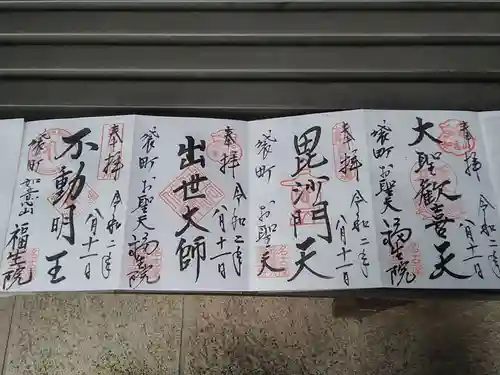 奉拝
令和二年
八月十一日
大聖歓喜天
袋町お聖天
福生院
奉拝
令和二年
八月十一日
毘沙門天
袋町
お聖天
奉拝
令和二年
八月十一日
出世大師
袋町お聖天
福生院
奉拝
令和二年
八月十一日
不動明王
袋町如意山
福生院